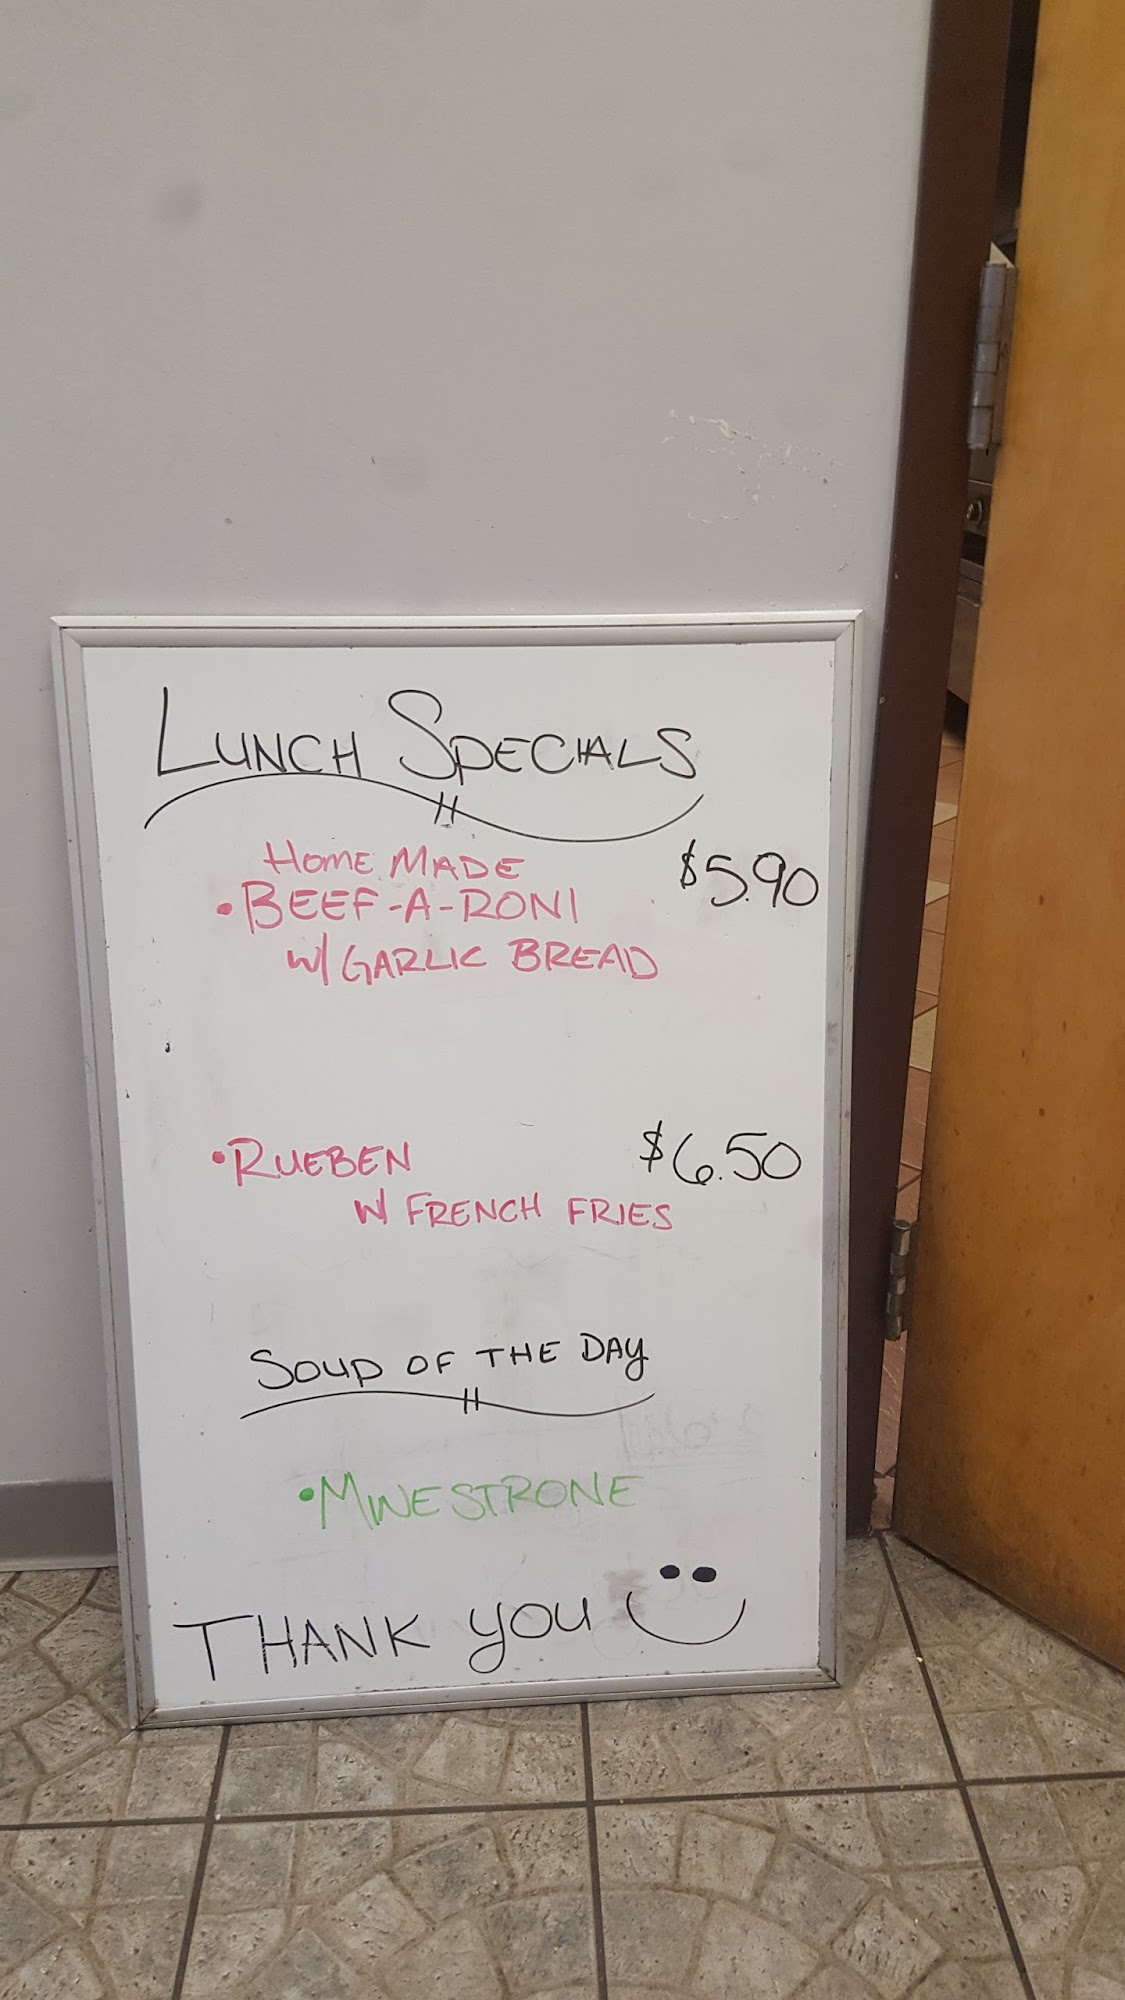 LUNCH SPECIALS
HOME MADE $5.90
• BEEF-A-RONI
W/ GARLIC BREAD
• RUEBEN $6.50
W/ FRENCH FRIES
SOUP OF THE DAY
• MINESTRONE
THANK YOU